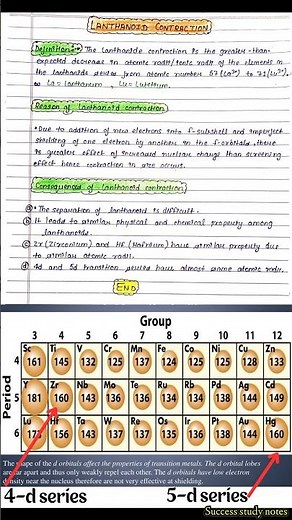 LANTHANOID CONTRACTION
Definition:- The lanthanide contraction is the greater-than-
expected decrease in atomic radii/ionic radii of the elements in
the lanthanide series from atomic number 57 (La3+) to 71 (Lu3+).
La = lanthanum, Lu = Lutetium.
Reason of lanthanoid contraction
• Due to addition of new electrons into f-subshell and imperfect
shielding of one electron by another in the f-orbitals, there
is greater effect of increased nuclear charge than screening
effect hence contraction in size occurs.
Consequences of lanthanoid contraction
a • The separation of lanthanoid is difficult.
b It leads to similar physical and chemical property among
lanthanoids.
c Zr (Zirconium) and Hf (Hafnium) have similar property due
to similar atomic radii.
d 4d and 5d transition series have almost same atomic radii.
END
Group
3 4 5 6 7 8 9 10 11 12
Sc Ti V Cr Mn Fe Co Ni Cu Zn
4 161 145 132 125 137 124 125 125 128 133
Y Zr Nb Mo Tc Ru Rh Pd Ag Cd
5 181 160 143 136 136 134 134 138 144 149
Lu Hf Ta W Re Os Ir Pt Au Hg
6 173 156 143 137 137 135 136 139 144 160
Period
The shape of the d orbitals affect the properties of transition metals. The d orbital lobes
are far apart and thus only weakly repel each other. The d orbitals have low electron
density near the nucleus therefore are not very effective at shielding.
4-d series
5-d series
Success study notes